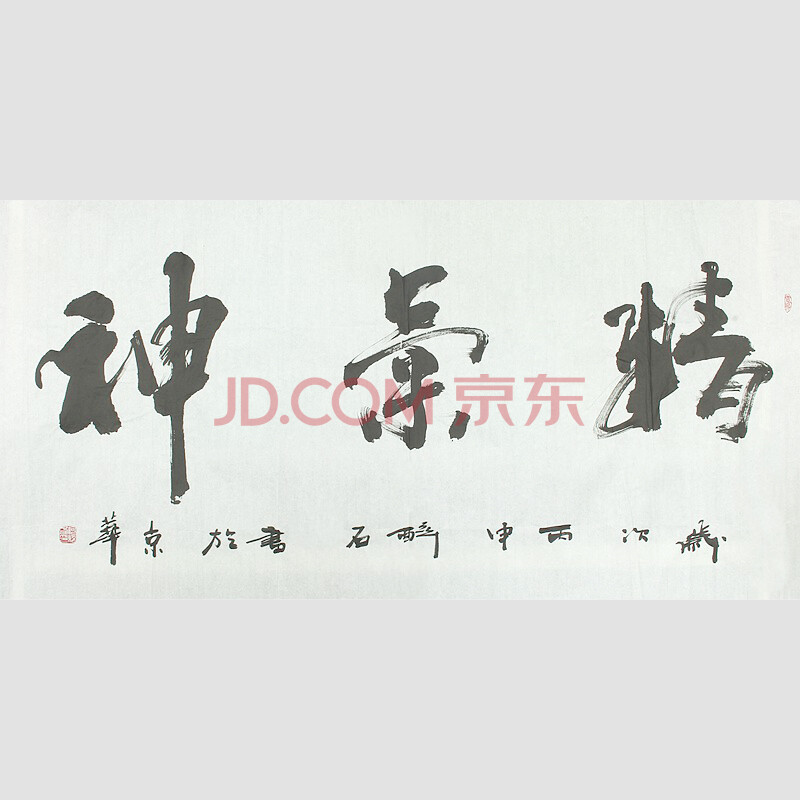 精氣神
JD.COM 京东
歲次丙申醉石書於京華